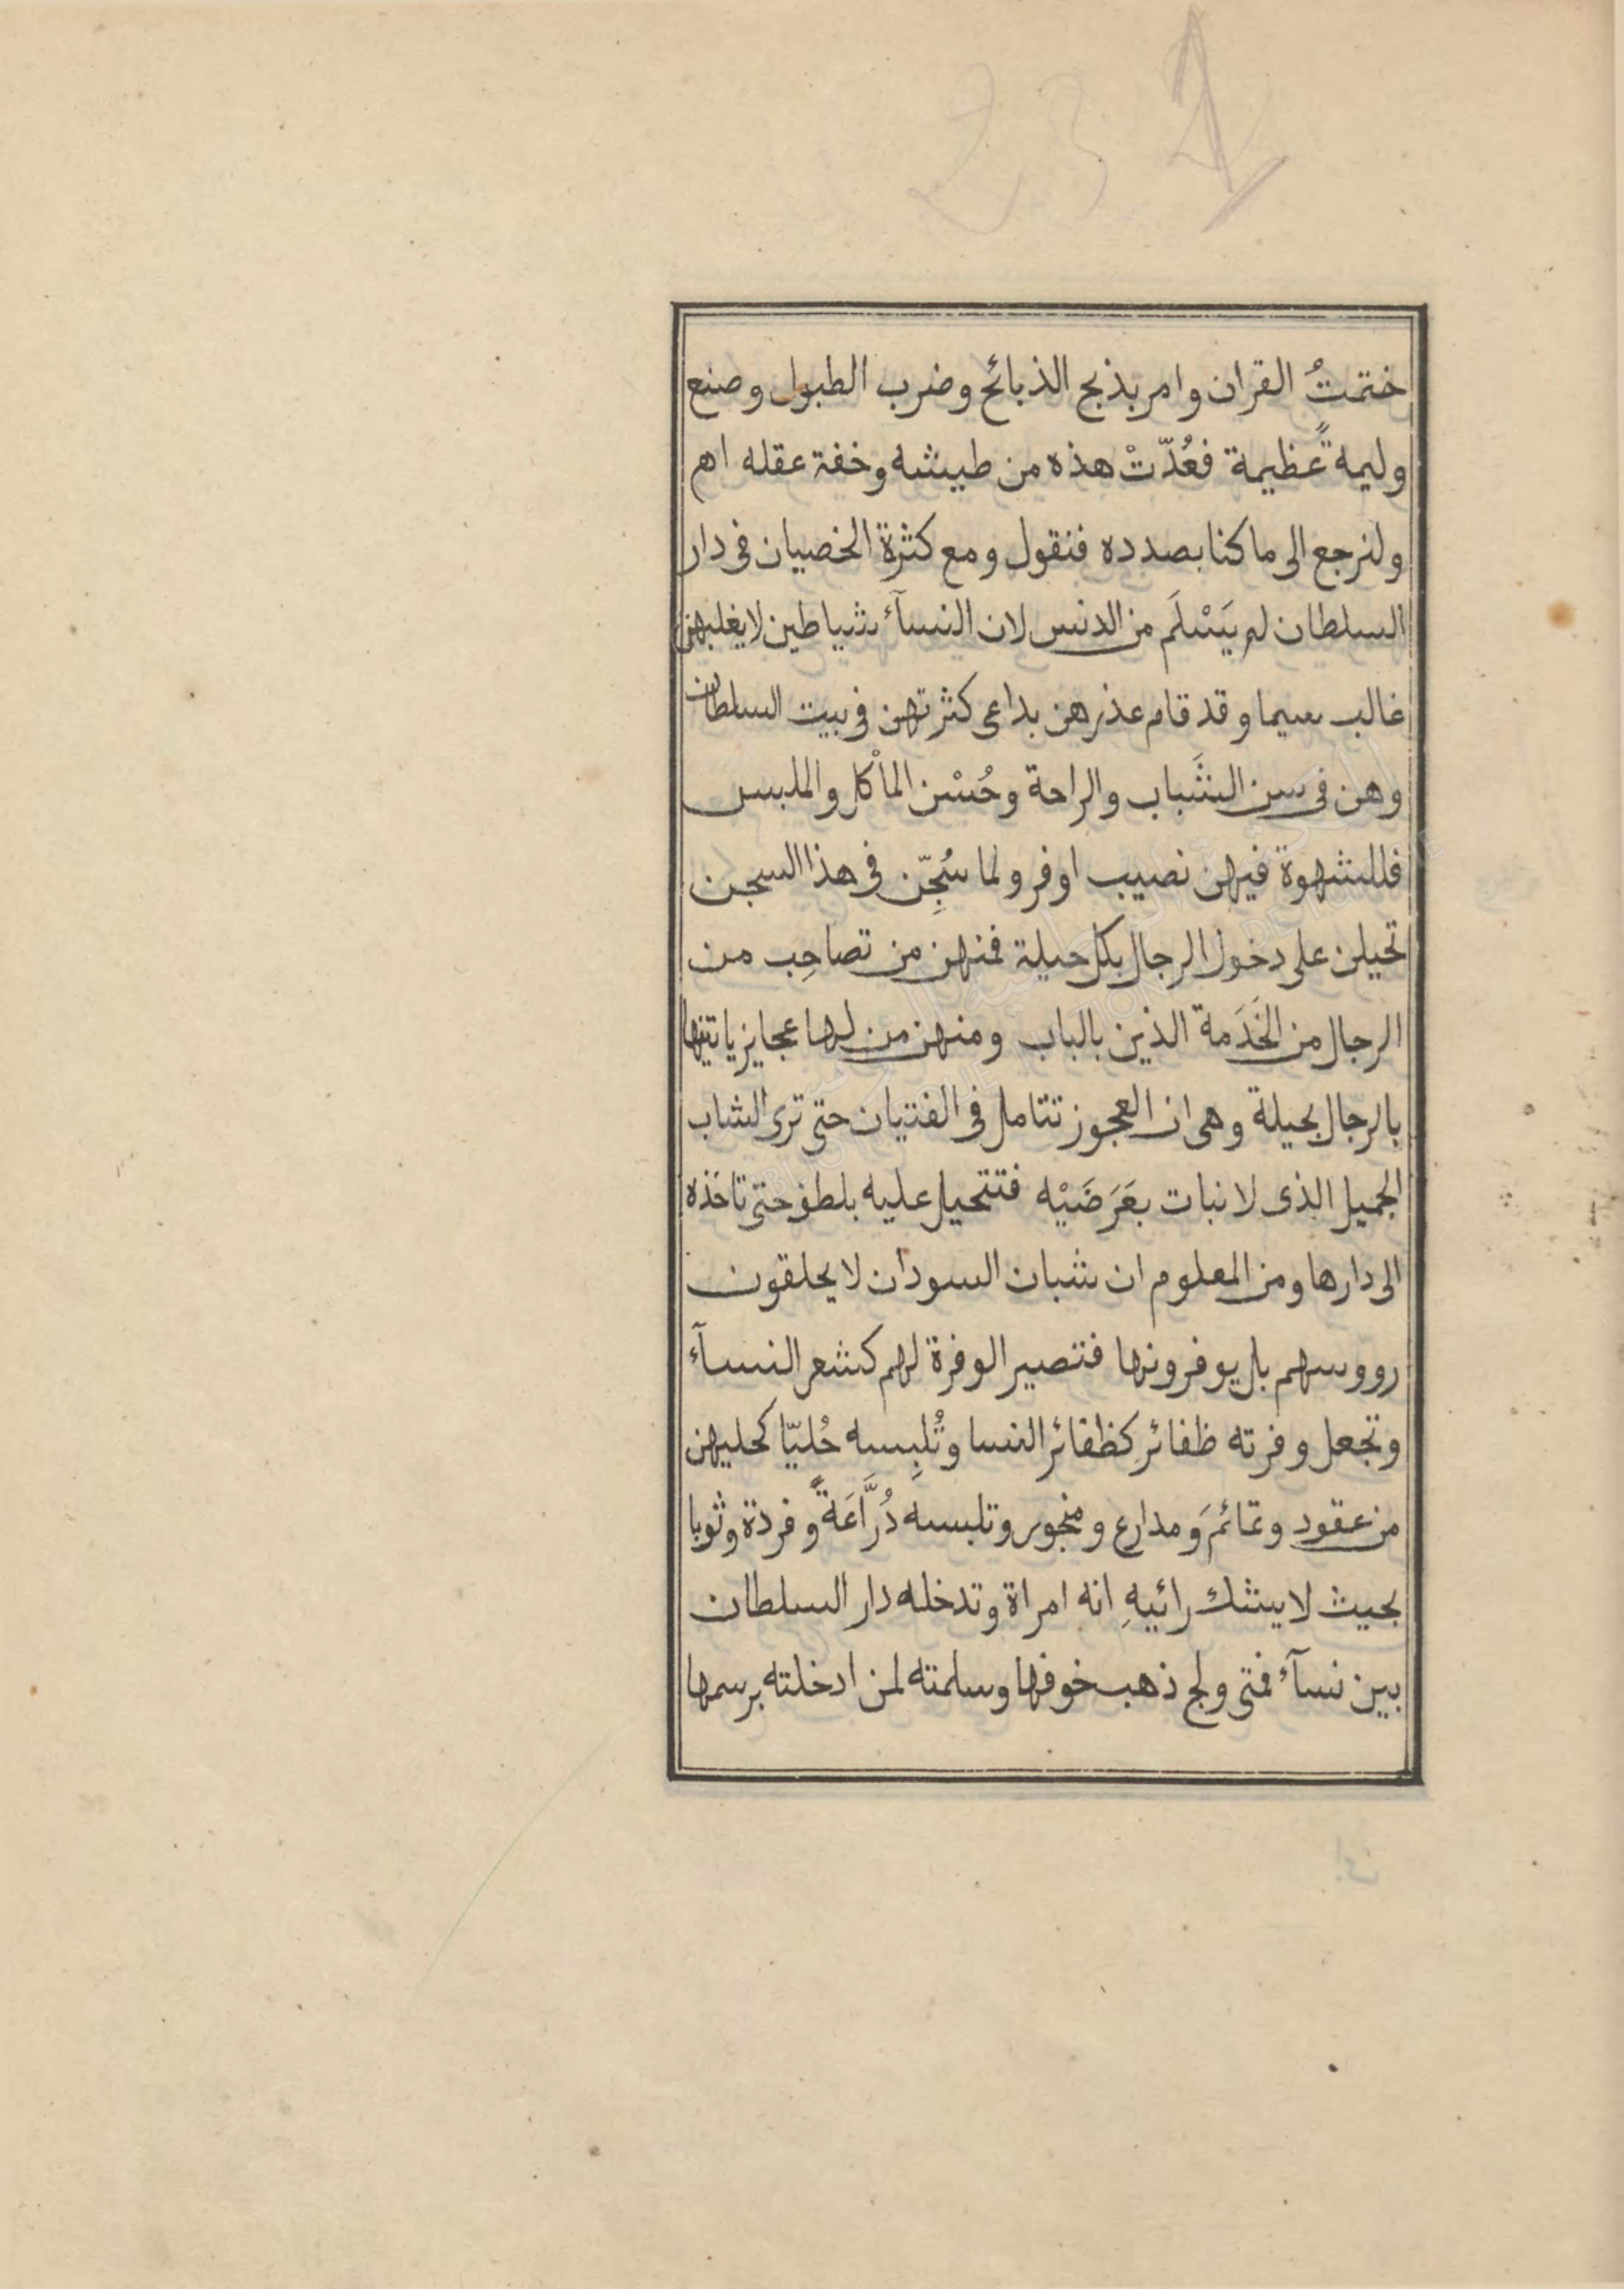 231
ختمتُ القران وامر بذبح الذبائح وضرب الطبول وصنع
وليمةً عظيمة فعُدّتْ هذه من طيشه وخفة عقله اهم
ولنرجع الى ما كنا بصدده فنقول ومع كثرة الخصيان فى دار
السلطان لم يَسْلَم من الدنس لان النسآء شياطين لا يغلبهن
غالب سيما وقد قام عذرهن بداعى كثرتهن فى بيت السلطان
وهن فى سن الشَباب والراحة وحُسْن المأكل والملبس
فللشهوة فيهن نصيب اوفر ولما سُجِّن فى هذا السجن
تحيلن على دخول الرجال بكل حيلة فمنهن من تصاحِب من
الرجال من الخَدَمة الذين بالباب ومنهن من لها عجايز ياتينها
بالرجال بحيلة وهى ان العجوز تتامل فى الفتيان حتى ترى الشاب
الجميل الذى لا نبات بعَرَضَيْه فتتحيل عليه بلطف حتى تاخذه
الى دارها ومن المعلوم ان شبان السودان لا يحلقون
رووسهم بل يوفرونها فتصير الوفرة لهم كشعر النسآء
وتجعل وفرته ظفائر كظفائر النسا وتُلبِسه حُليّا كحليهن
من عقود وتمائمَ ومدارع ومنجور وتلبسه دُرَّاعَةً وفردة وثوبا
بحيث لا يشك رائيهِ انه امراة وتدخله دار السلطان
بين نسآء فمتى ولج ذهب خوفها وسلمته لمن ادخلته برسمها